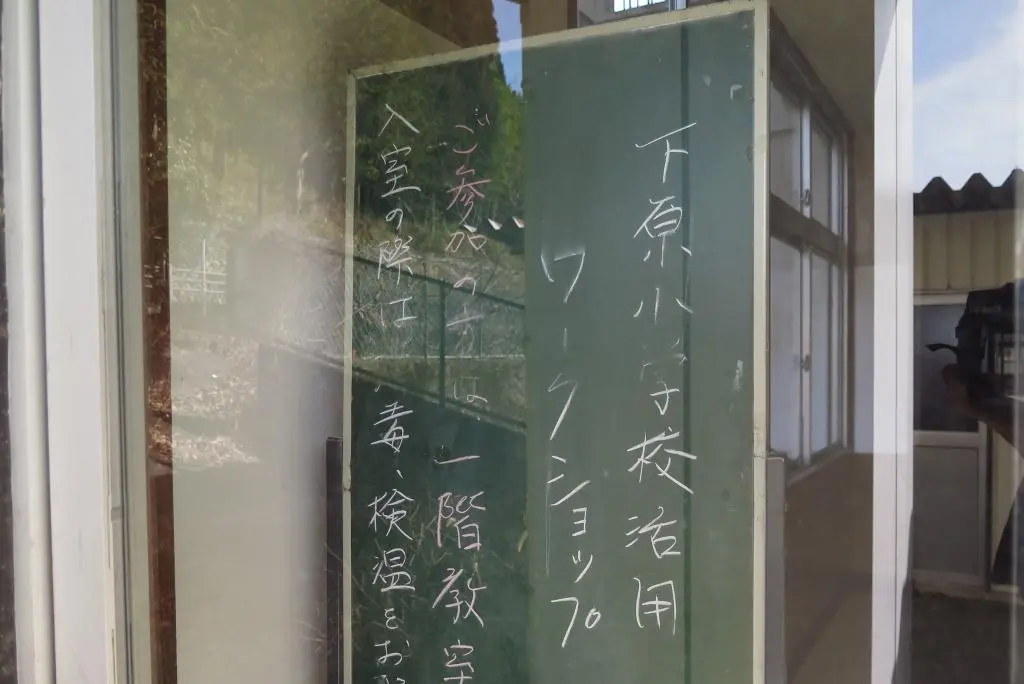 下原小学校活用
ワークショップ
ご参加の方は一階教室
入室の際は 毒、検温をお